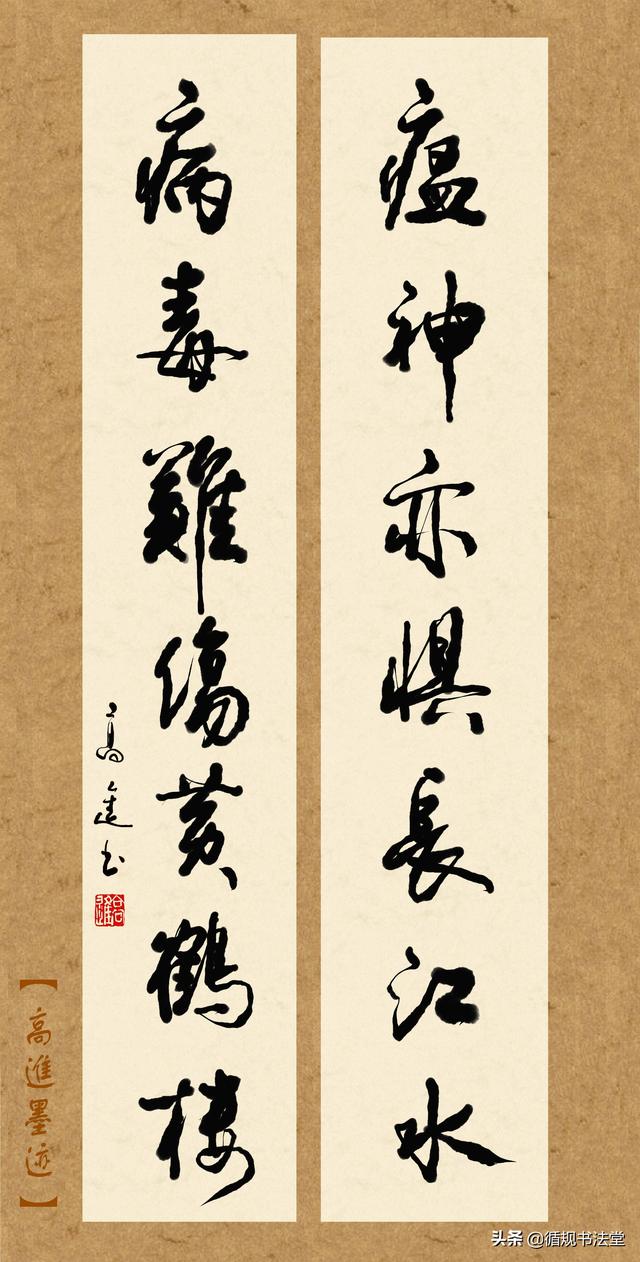 瘟神亦惧長江水
病毒難傷黄鶴楼
高進书
高進
【高進墨迹】
头条 @循规书法堂